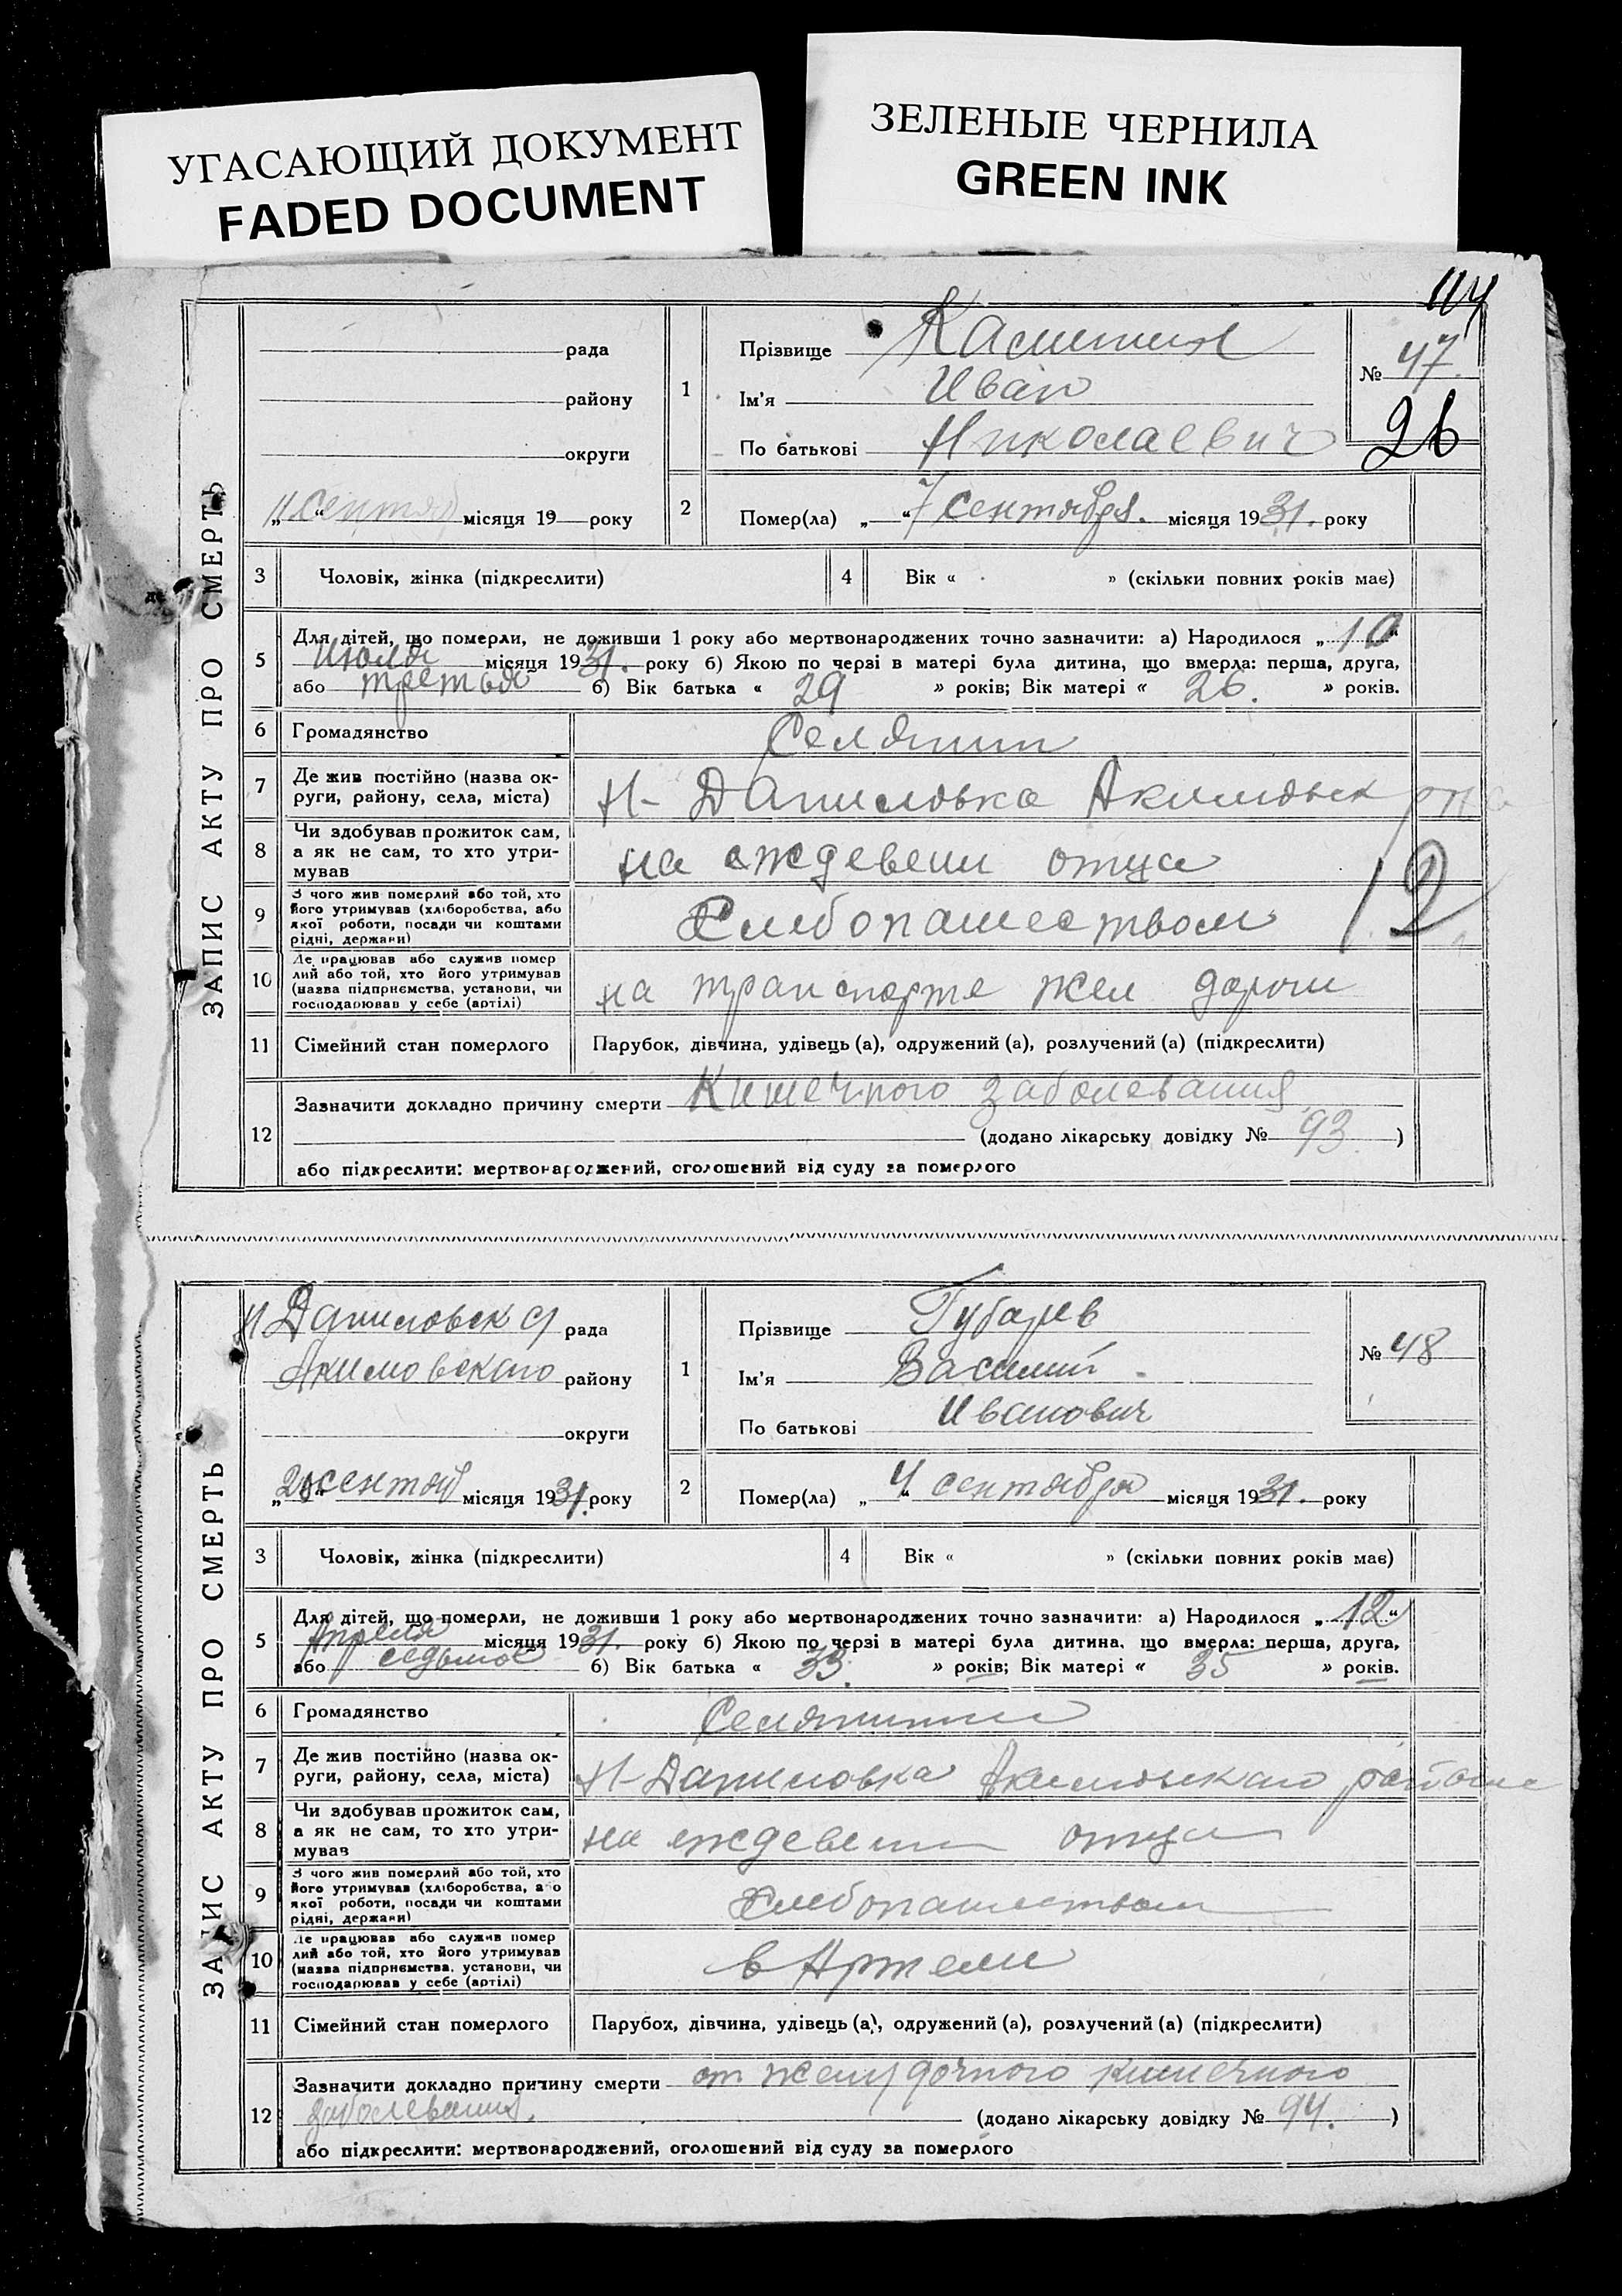 УГАСАЮЩИЙ ДОКУМЕНТ
FADED DOCUMENT
ЗЕЛЕНЫЕ ЧЕРНИЛА
GREEN INK
114
ЗАПИС АКТУ ПРО СМЕРТЬ
рада
району
округи
„11“ сентяб місяця 19 року
1
Прізвище
Ім'я Иван
По батькові Николаевич
№ 47.
26
2
Помер(ла) „ “ 7 сентября. місяця 1931. року
3 Чоловік, жінка (підкреслити)
4 Вік « » (скільки повних років має)
5 Для дітей, що померли, не доживши 1 року або мертвонароджених точно зазначити: а) Народилося „10“
Июля місяця 1931. року б) Якою по черзі в матері була дитина, що вмерла: перша, друга,
або третья б) Вік батька « 29 » років; Вік матері « 26. » років.
6 Громадянство Селянин
7 Де жив постійно (назва ок-
руги, району, села, міста) Н-Даниловка Акимовск р на
8 Чи здобував прожиток сам,
а як не сам, то хто утри-
мував на еждевени отца
12
9 З чого жив померлий або той, хто
його утримував (хліборобства, або
якої роботи, посади чи коштами
рідні, держави) Хлебопашеством
10 Де працював або служив помер
лий або той, хто його утримував
(назва підприємства, установи, чи
господарював у себе (артілі) на транспорте жел дороги
11 Сімейний стан померлого Парубок, дівчина, удівець (а), одружений (а), розлучений (а) (підкреслити)
12 Зазначити докладно причину смерти Кишечного заболевания
(додано лікарську довідку № 93. )
або підкреслити: мертвонароджений, оголошений від суду за померлого
ЗАПИС АКТУ ПРО СМЕРТЬ
Н Даниловск с/ рада
Акимовского району
округи
„20“ сентяб місяця 1931. року
1
Прізвище Губарев
Ім'я Василий
По батькові Иванович
№ 48
2
Помер(ла) „4“ сентября місяця 1931. року
3 Чоловік, жінка (підкреслити)
4 Вік « » (скільки повних років має)
5 Для дітей, що померли, не доживши 1 року або мертвонароджених точно зазначити: а) Народилося „12“
Апреля місяця 1931. року б) Якою по черзі в матері була дитина, що вмерла: перша, друга,
або седьмое б) Вік батька « 33. » років; Вік матері « 35 » років.
6 Громадянство Селянини
7 Де жив постійно (назва ок-
руги, району, села, міста) Н-Даниловка Акимовского района
8 Чи здобував прожиток сам,
а як не сам, то хто утри-
мував на еждевени отца
9 З чого жив померлий або той, хто
його утримував (хліборобства, або
якої роботи, посади чи коштами
рідні, держави) Хлебопашеством
10 Де працював або служив помер
лий або той, хто його утримував
(назва підприємства, установи, чи
господарював у себе (артілі) в Артели
11 Сімейний стан померлого Парубок, дівчина, удівець (а), одружений (а), розлучений (а) (підкреслити)
12 Зазначити докладно причину смерти от желудочного кишечного
заболевания. (додано лікарську довідку № 94. )
або підкреслити: мертвонароджений, оголошений від суду за померлого